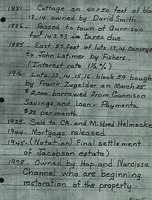 1881 - Cottage on 40x50 feet of blo
13, 14 owned by David Smith.
1886 - Passed to town of Gunnison
for 143.93 in taxes due.
1885 - East 87 feet of lots 13, 14 conveye
to John Latimer by Fishers.
(Interest rate 1½%)
1916 - Lots 13, 14, 15, 16 block 59 bought
by Frank Zugelder on March 25.
$2,000 borrowed from Gunnison
Savings and Loan - Payments
$25 per month.
1925 - Sold to CA. and Mildred Helmecke
1944 - Mortgage released
1945 - (Notation) Final settlement
of Jacobson estate)
1998 - Owned by Hap and Narcissa
Channel who are beginning
restoration of the property.